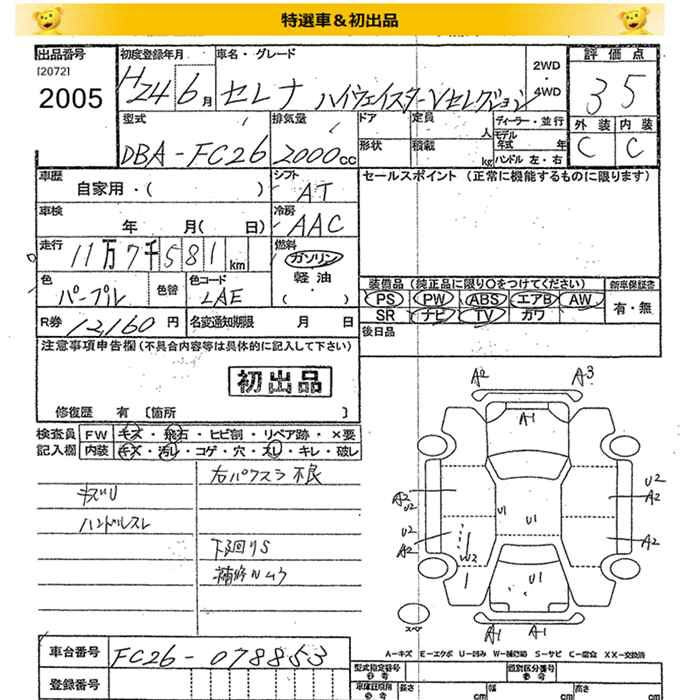 特選車＆初出品
出品番号 初度登録年月 車名・グレード 2WD・4WD 評価点
[2072]
2005 H24 6月 セレナ ハイウェイスターVセレクション 35
型式 排気量 ドア 定員 人 ディーラー・並行 外装 内装
DBA-FC26 2000cc 形状 積載 kg モデル年式 年 ハンドル 左・右 C C
車歴 自家用・( ) シフト AT セールスポイント（正常に機能するものに限ります）
車検 年 月( 日) 冷房 AAC
走行 11万7千581km 燃料 ガソリン 軽油
色 パープル 色替 色コード LAE 装備品（純正品に限り○をつけてください） 新車保証書
PS PW ABS エアB AW 有・無
R券 12,160円 名変通知期限 月 日 SR ナビ TV カワ
注意事項申告欄(不具合内容等は具体的に記入して下さい) 後日品
初出品
修復歴 有〔箇所 〕
検査員 FW キズ・飛石・ヒビ割・リペア跡・×要
記入欄 内装 キズ・汚レ・コゲ・穴・スレ・キレ・破レ
右パワスラ不良
キズU
ハンドルスレ
下廻りS
補修ムラ
A2 A3
A1
A2 U2 U1 U1 U2 A2
U2 A2 W2 A2
U1
スペア
A1 A1
A-キズ E-エクボ U-凹み W-補修跡 S-サビ C-腐食 XX-交換済
車台番号 FC26-078853 型式指定番号 参考 類別区分番号 参考
登録番号 長さ cm 幅 cm 高さ cm